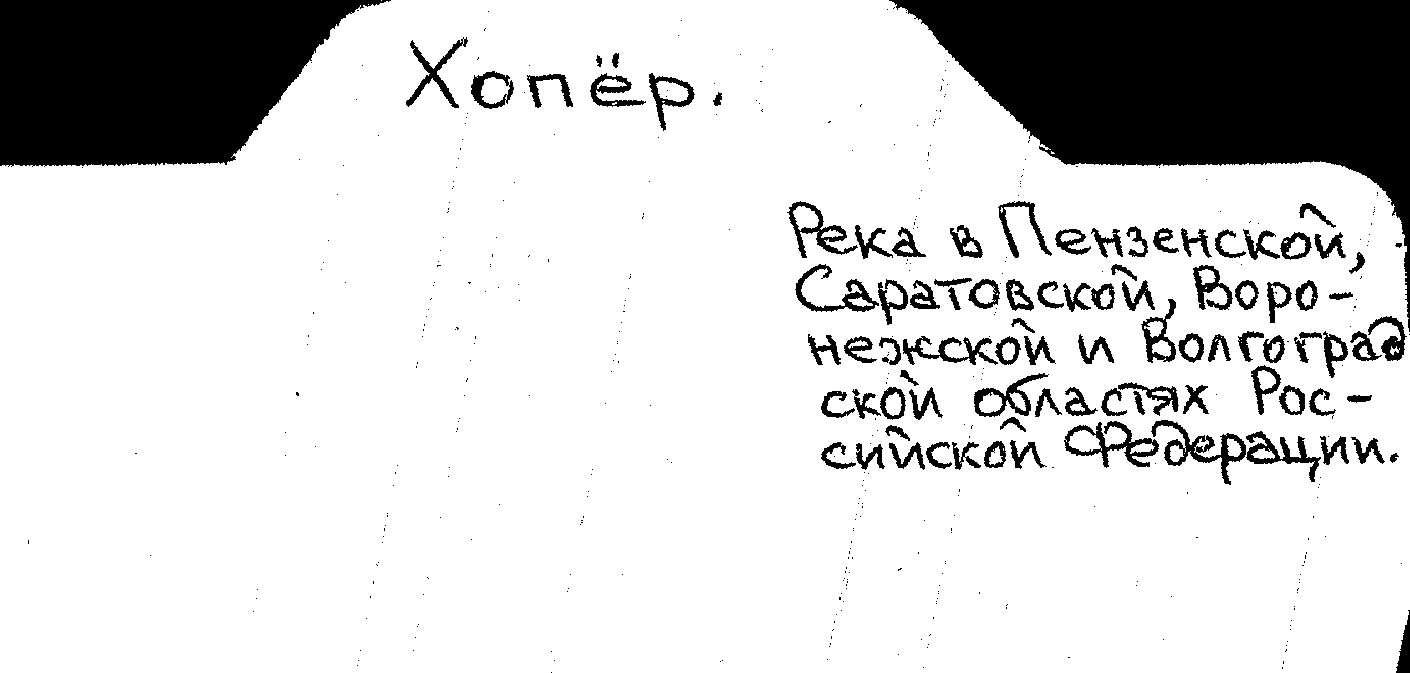 Хопёр.
Река в Пензенской,
Саратовской, Воро-
нежской и Волгоград
ской областях Рос-
сийской Федерации.